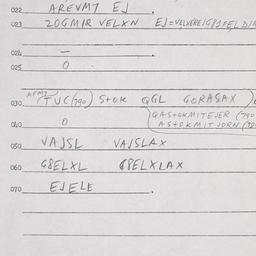 022 AREVMT EJ
023 20GMIR VELXN EJ=VELXEREJG8IFEL DJA
024 —
025 O
030 AFMT (TJC(790) StOK GGL GORASAX )
GASTOKMITEJER (790
040 O ASTOKMITJORN (790
050 VAJSL VAJSLAX
060 G8ELXL G8ELXLAX
070 EJELE